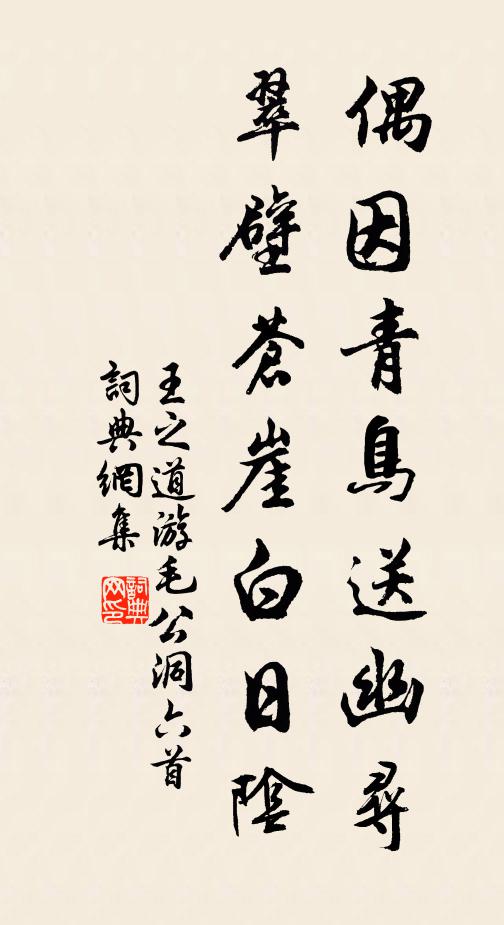 偶因青鳥送幽尋
翠壁蒼崖白日陰
王之道游毛公洞六首
詞典網集
詞典網印